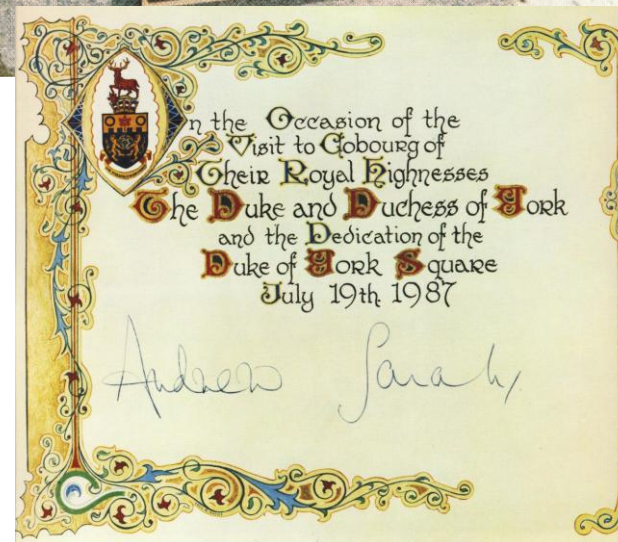 On the Occasion of the
Visit to Cobourg of
Their Royal Highnesses
The Duke and Duchess of York
and the Dedication of the
Duke of York Square
July 19th 1987
Andrew Sarah